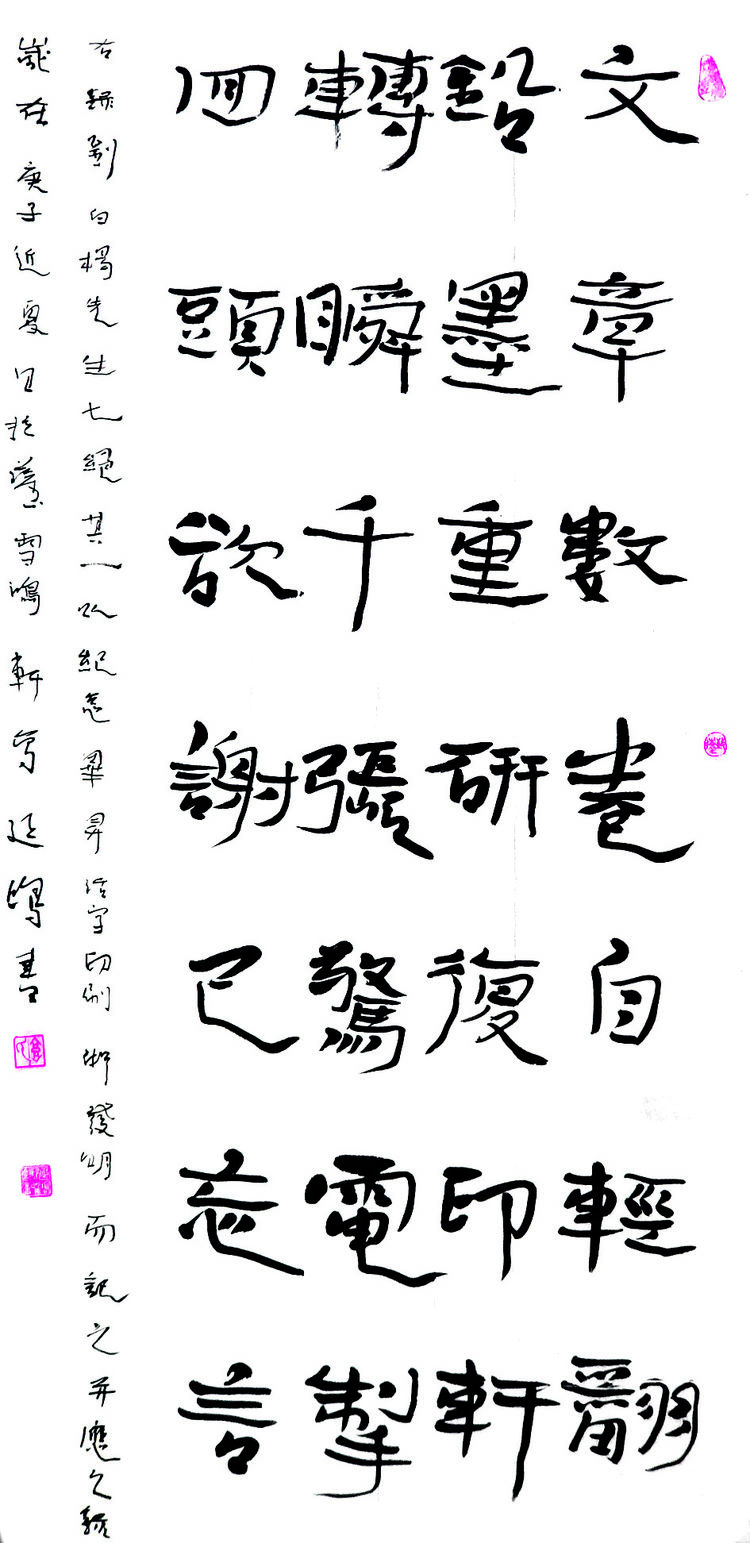 文章數卷自輕翻
鉛墨重研復印軒
轉瞬千張驚電掣
回頭欲謝已忘言
右錄劉白楊先生七絕其一以紀念畢昇活字印刷術發明而記之并應之
歲在庚子近夏日於雪鴻軒寫延鴻書